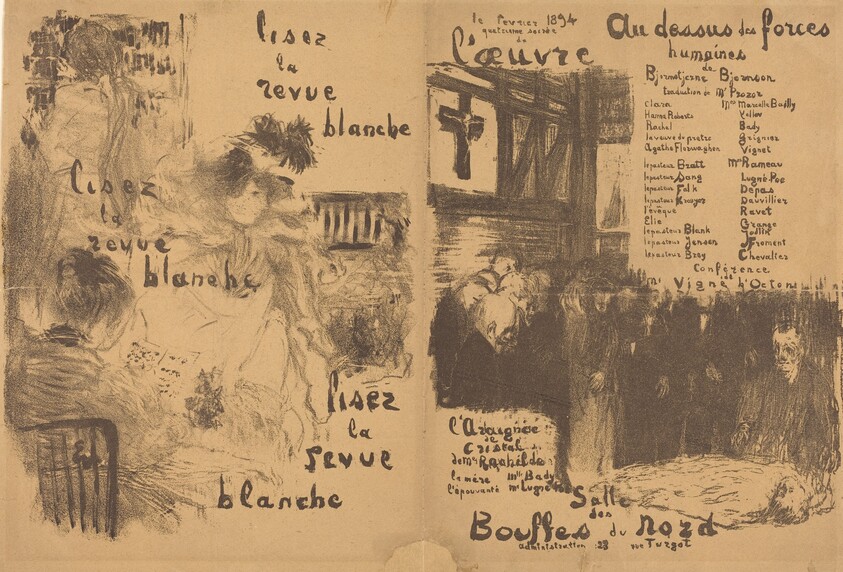 lisez
la
revue
blanche
lisez
la
revue
blanche
lisez
la
revue
blanche
le fevrier 1894
quatrieme soirée
de
l'œuvre
Au dessus des forces
humaines
de
Bjornstjerne Bjornson
traduction de Mr Prozor
Clara Mmes Marcelle Bailly
Hanna Roberts
Rachel Bady
la veuve du pretre Grignier
Agathe Florvaghen Vignet
le pasteur Bratt Mrs Rameau
le pasteur Sang Lugné-Poe
le pasteur Falk Depas
le pasteur Krøyer Dauvillier
l'évêque Ravet
Elie Grange
le pasteur Blank
le pasteur Jensen Froment
le pasteur Brey Chevalier
Conférence
Mr Vigné d'Octon
l'Araignée
de
Cristal
de Me Rachilde
la mère Mlle Bady
l'épouvanté Mr Lugné Poe
Salle
des
Bouffes du Nord
administration : 23 rue Turgot